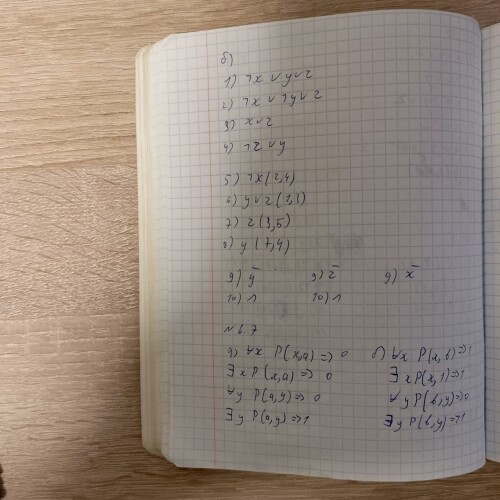 б)
1) ¬x ∨ y ∨ z
2) ¬x ∨ ¬y ∨ z
3) x ∨ z
4) ¬z ∨ y
5) ¬x (2,4)
6) y ∨ z (1,3)
7) z (3,5)
8) y (7,4)
9) y̅ 9) z̅ 9) x̅
10) Λ 10) Λ
№ 6.7
a) ∀x P(x,a) => 0 б) ∀x P(x,b) => 1
∃x P(x,a) => 0 ∃x P(x,1) => 1
∀y P(a,y) => 0 ∀y P(b,y) => 0
∃y P(a,y) => 1 ∃y P(b,y) => 1